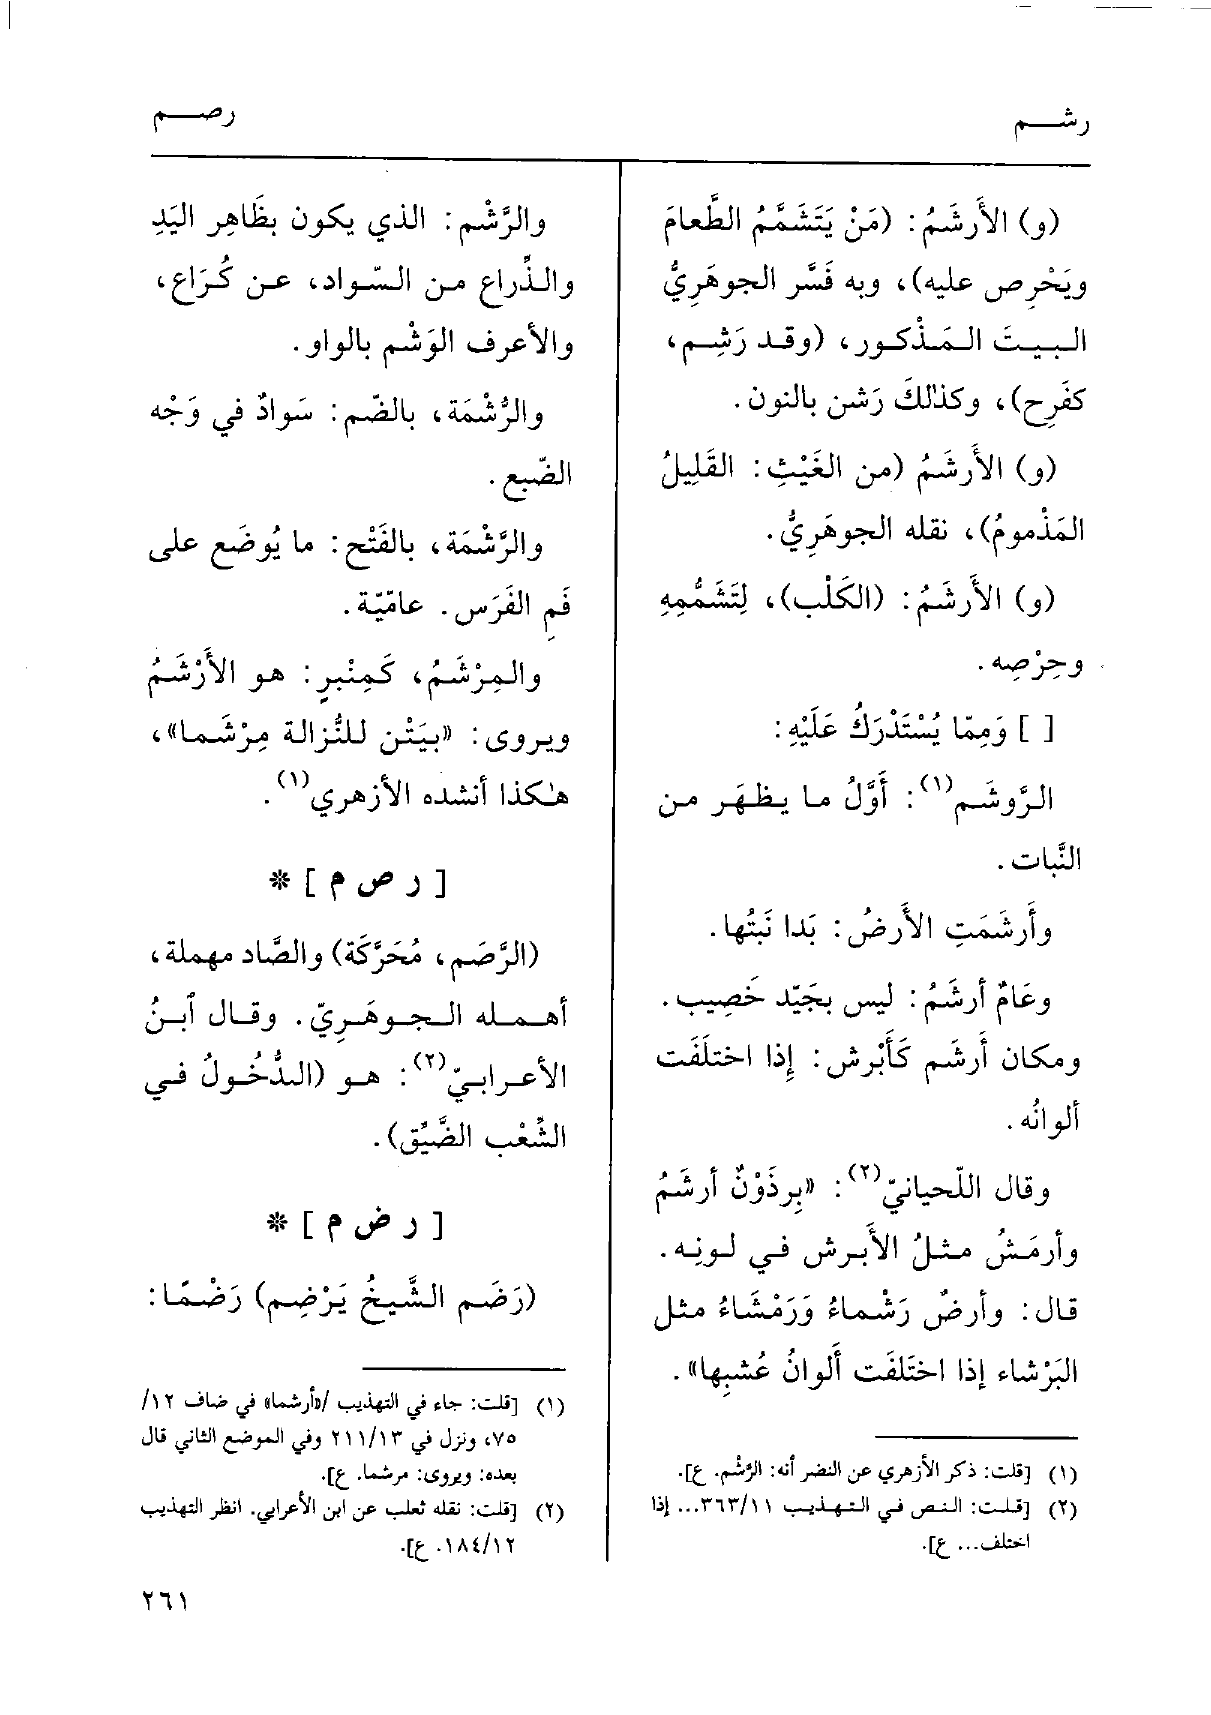 رشم
رصم
(و) الأَرشَمُ: (مَنْ يَتَشَمَّمُ الطَّعامَ
ويَحْرِص عليه)، وبه فَسَّر الجوهَرِيُّ
البيتَ المَذْكور، (وقد رَشِم،
كفَرِح)، وكذلكَ رَشن بالنون.
(و) الأَرشَمُ (من الغَيْثِ: القَلِيلُ
المَذْمومُ)، نقله الجوهَرِيُّ.
(و) الأَرشَمُ: (الكَلْب)، لِتَشَمُّمِهِ
وحِرْصِه.
[ ] وَمِمّا يُسْتَدْرَكُ عَلَيْهِ:
الرَّوشَم(١): أَوَّلُ ما يظهَر من
النَّبات.
وأَرشَمَتِ الأَرضُ: بَدا نَبتُها.
وعَامٌ أرشَمُ: ليس بجَيّد خَصِيب.
ومكان أَرشَم كَأَبْرش: إِذا اختلَفَت
ألوانُه.
وقال اللّحيانيّ(٢): «بِرذَوْنٌ أرشَمُ
وأرمَشُ مثلُ الأَبرش في لونِه.
قال: وأرضٌ رَشْماءُ وَرَمْشَاءُ مثل
البَرْشاء إذا اختَلَفَت أَلوانُ عُشبِها».
(١) [قلت: ذكر الأزهري عن النضر أنه: الرَّشْم. ع].
(٢) [قلت: النص في التهذيب ٣٦٣/١١... إذا
اختلف... ع].
والرَّشْم: الذي يكون بظَاهِر اليَدِ
والذِّراع من السّواد، عن كُرَاع،
والأعرف الوَشْم بالواو.
والرُّشْمَة، بالضّم: سَوادٌ في وَجْه
الضّبع.
والرَّشْمَة، بالفَتْح: ما يُوضَع على
فَمِ الفَرَس. عامّيّة.
والمِرْشَمُ، كَمِنْبرٍ: هو الأَرْشَمُ
ويروى: «بيَتْن للنُّزالة مِرْشَما»،
هٰكذا أنشده الأزهري(١).
[ ر ص م ] *
(الرَّصَم، مُحَرَّكَة) والصَّاد مهملة،
أهمله الجوهَرِيّ. وقال ٱبنُ
الأعرابيّ(٢): هو (الدُّخُولُ في
الشِّعْب الضَّيِّق).
[ ر ض م ] *
(رَضَم الشَّيخُ يَرْضِم) رَضْمًا:
(١) [قلت: جاء في التهذيب /«أرشما» في ضاف ١٢/
٧٥، ونزل في ٢١١/١٣ وفي الموضع الثاني قال
بعده: ويروى: مرشما. ع].
(٢) [قلت: نقله ثعلب عن ابن الأعرابي. انظر التهذيب
١٨٤/١٢. ع].
٢٦١